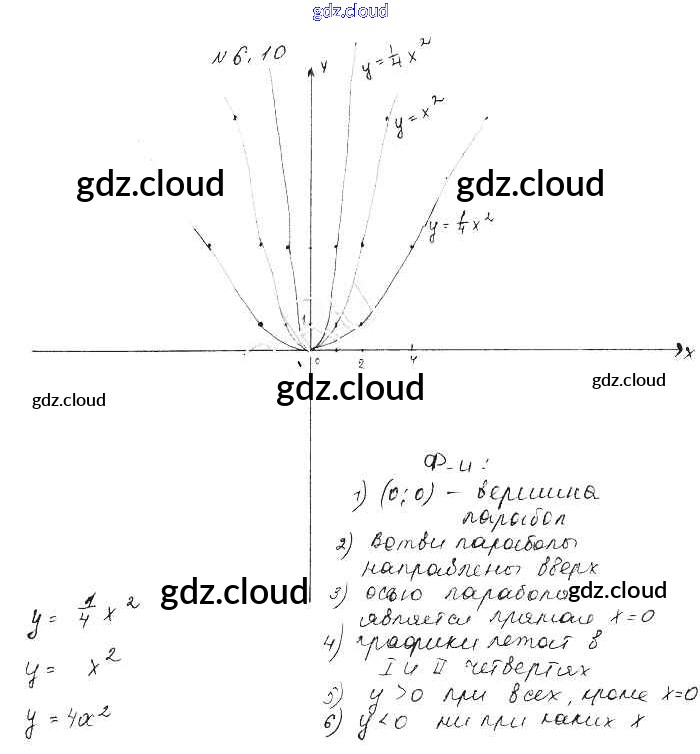 gdz.cloud
N 6.10
y
y = 1/4 x²
y = x²
gdz.cloud
gdz.cloud
y = 1/4 x²
1
0 2 4 x
gdz.cloud
gdz.cloud
gdz.cloud
Ф-и:
1) (0;0) - вершина
парабол
2) ветви параболы
направлены вверх
gdz.cloud
gdz.cloud
3) осью параболы
является прямая x=0
4) графики лежат в
I и II четвертях
5) y>0 при всех, кроме x=0
6) y<0 ни при каких x
y = 1/4 x²
y = x²
y = 4x²